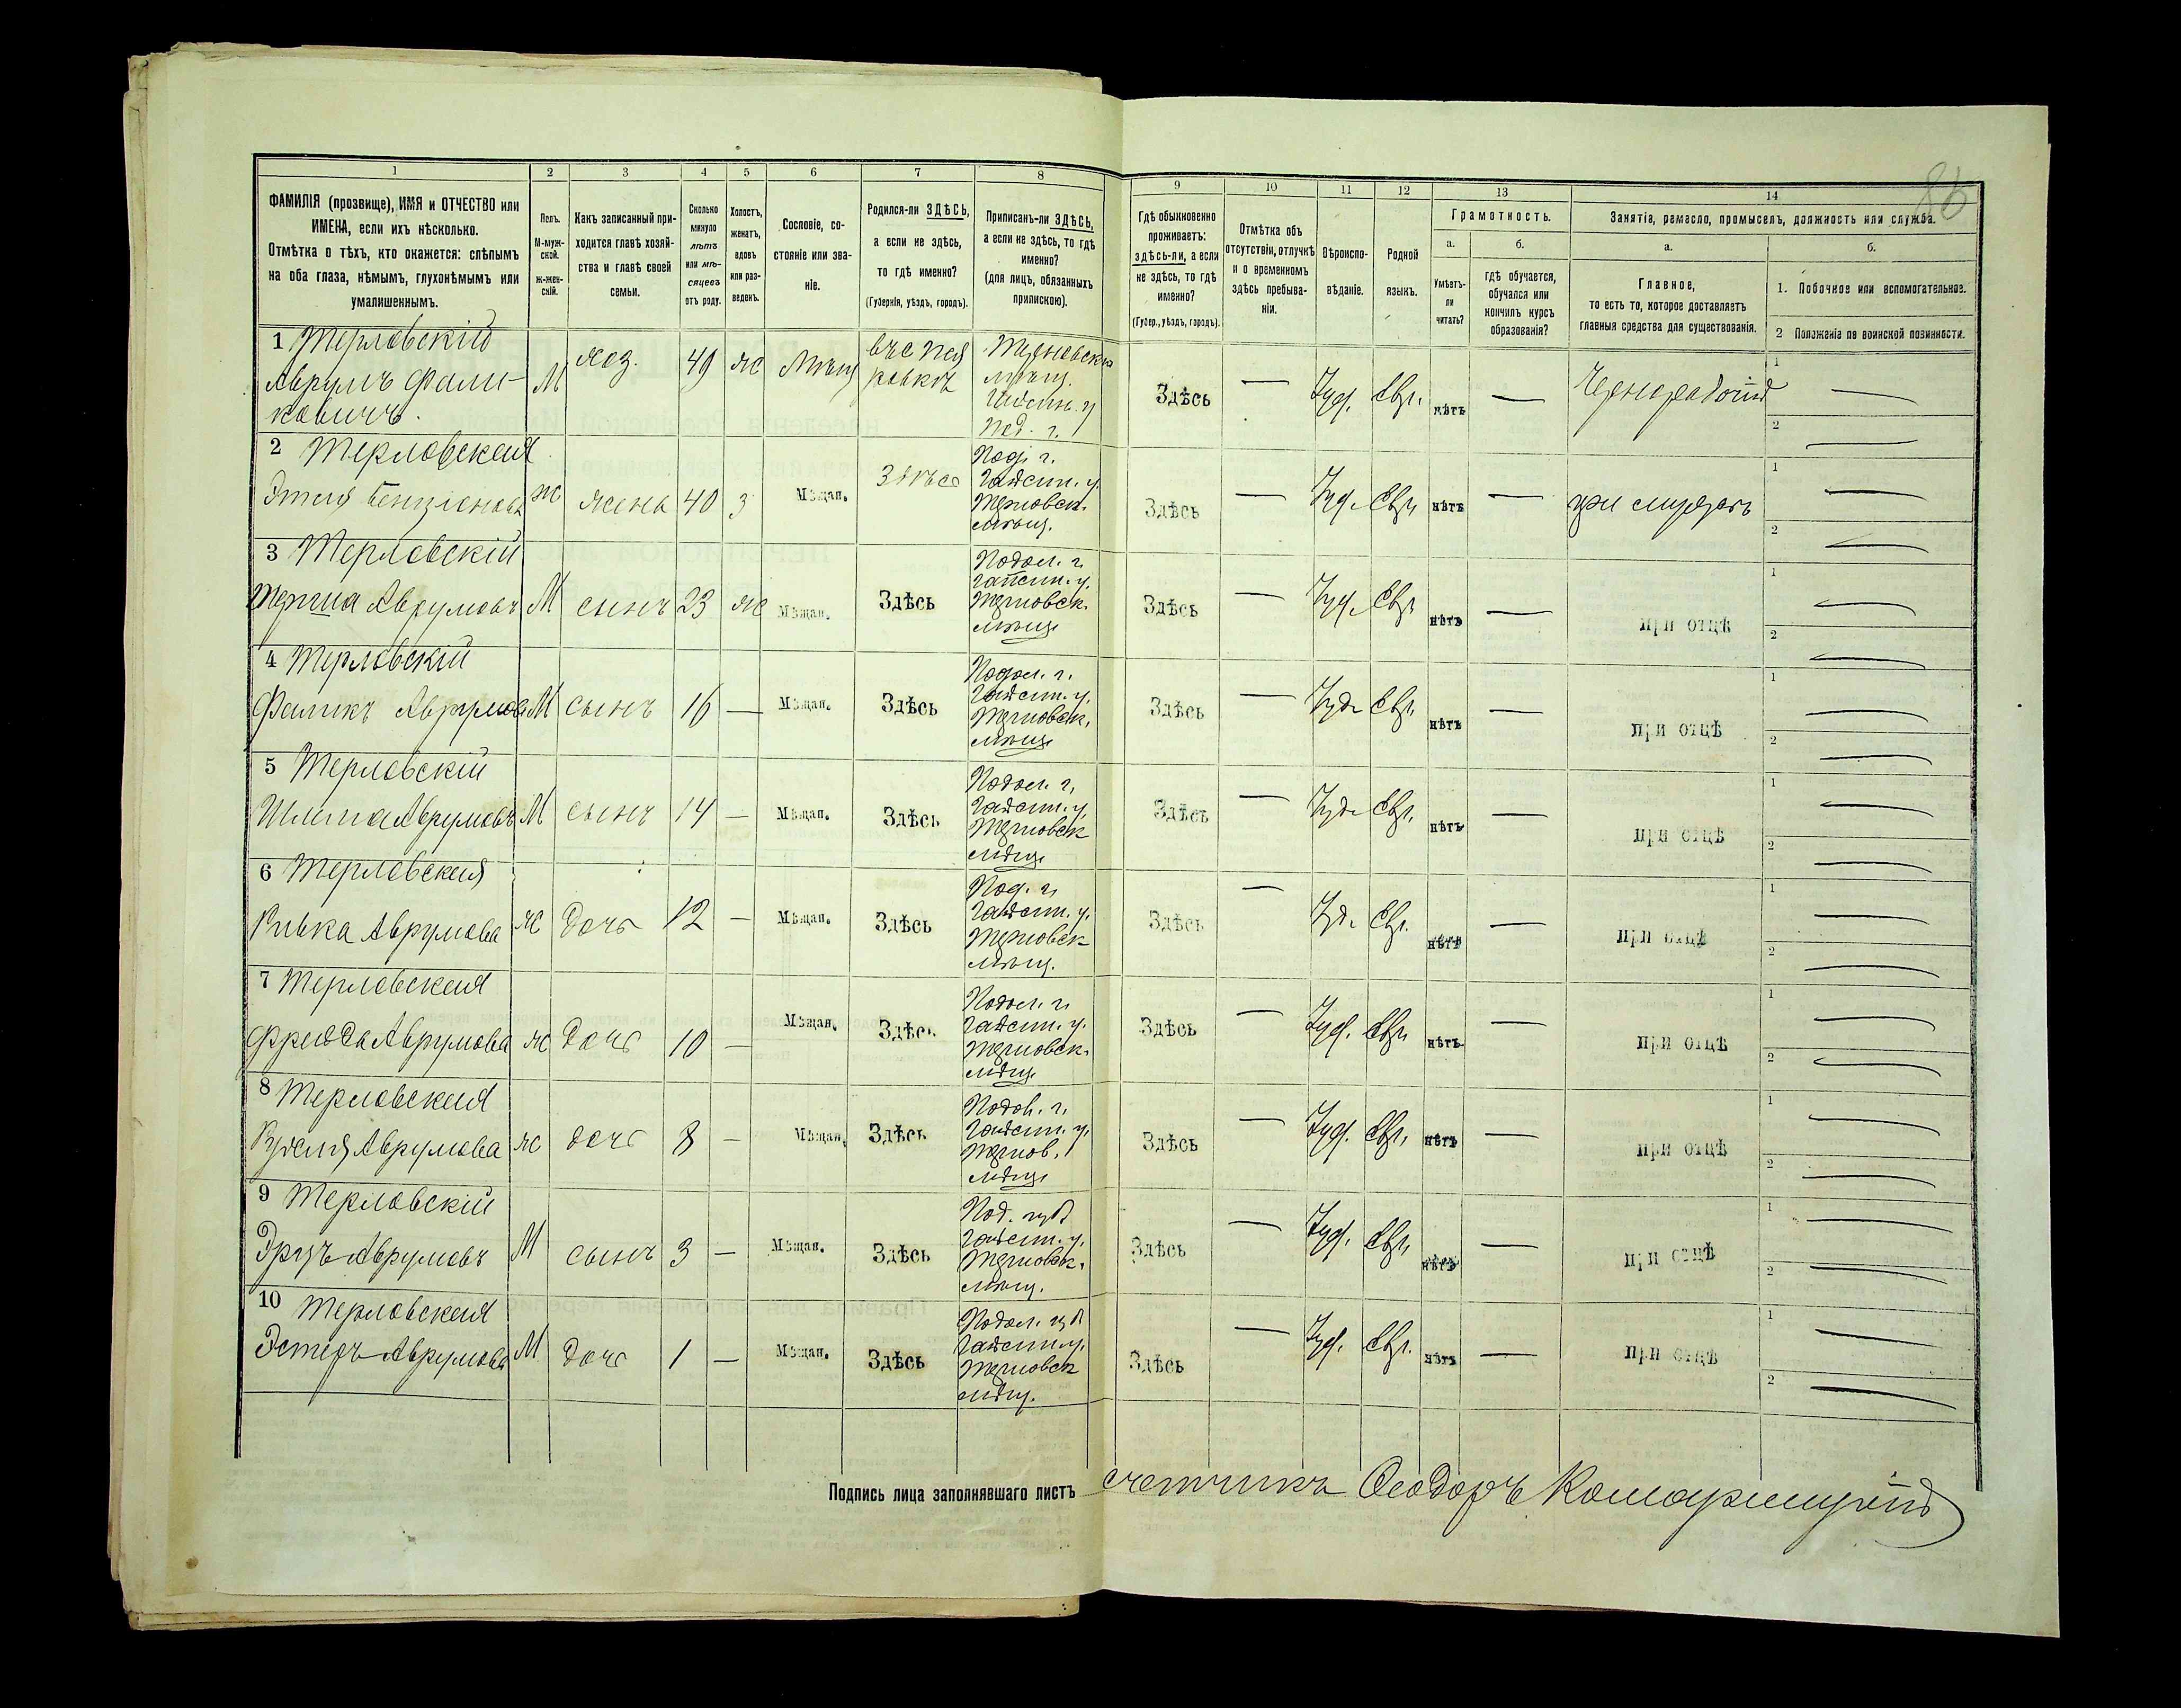 86
1 2 3 4 5 6 7 8 9 10 11 12 13 14
ФАМИЛІЯ (прозвище), ИМЯ и ОТЧЕСТВО или
ИМЕНА, если ихъ нѣсколько.
Отмѣтка о тѣхъ, кто окажется: слѣпымъ
на оба глаза, нѣмымъ, глухонѣмымъ или
умалишеннымъ.
Полъ.
М-муж-
ской.
ж-жен-
скій.
Какъ записанный при-
ходится главѣ хозяй-
ства и главѣ своей
семьи.
Сколько
минуло
лѣтъ
или мѣ-
сяцевъ
отъ роду.
Холостъ,
женатъ,
вдовъ
или раз-
веденъ.
Сословіе, со-
стояніе или зва-
ніе.
Родился-ли ЗДѢСЬ,
а если не здѣсь,
то гдѣ именно?
(Губернія, уѣздъ, городъ).
Приписанъ-ли ЗДѢСЬ,
а если не здѣсь, то гдѣ
именно?
(для лицъ, обязанныхъ
припискою).
Гдѣ обыкновенно
проживаетъ:
здѣсь-ли, а если
не здѣсь, то гдѣ
именно?
(Губер., уѣздъ, городъ).
Отмѣтка объ
отсутствіи, отлучкѣ
и о временномъ
здѣсь пребыва-
ніи.
Вѣроиспо-
вѣданіе.
Родной
языкъ.
Грамотность.
а.
Умѣетъ-
ли
читать?
б.
гдѣ обучается,
обучался или
кончилъ курсъ
образованія?
Занятіе, ремесло, промыселъ, должность или служба.
а.
Главное,
то есть то, которое доставляетъ
главныя средства для существованія.
б.
1. Побочное или вспомогательное.
2 Положеніе по воинской повинности.
1 Терловскій
Аврумъ Фали-
ковичъ.
М хоз. 49 ж Мѣщ
Терновск.
мѣщ.
Гайсин. у
Под. г.
Здѣсь — Іуд. Евр. нѣтъ — Чернорабочій 1 — 2 —
2 Терловская
Этля Бенціонова
ж жена 40 з Мѣщан. Здѣсь
Под. г.
Гайсин. у.
Терновск.
мѣщ.
Здѣсь — Іуд. Евр. нѣтъ — при мужѣ 1 — 2 —
3 Терловскій
Аврумовъ М сынъ 23 ж Мѣщан. Здѣсь
Подол. г.
Гайсин. у.
Терновск.
мѣщ.
Здѣсь — Іуд. Евр. нѣтъ — при отцѣ 1 — 2 —
4 Терловскій
Фаликъ Аврумовъ М сынъ 16 — Мѣщан. Здѣсь
Подол. г.
Гайсин. у.
Терновск.
мѣщ.
Здѣсь — Іуд. Евр. нѣтъ — при отцѣ 1 — 2 —
5 Терловскій
Аврумовъ М сынъ 14 — Мѣщан. Здѣсь
Подол. г.
Гайсин. у.
Терновск
мѣщ.
Здѣсь — Іуд. Евр. нѣтъ — при отцѣ 1 — 2 —
6 Терловская
Ривка Аврумова ж дочь 12 — Мѣщан. Здѣсь
Под. г.
Гайсин. у.
Терновск
мѣщ.
Здѣсь — Іуд. Евр. нѣтъ — при отцѣ 1 — 2 —
7 Терловская
Фрейда Аврумова ж дочь 10 — Мѣщан. Здѣсь
Подол. г.
Гайсин. у.
Терновск.
мѣщ.
Здѣсь — Іуд. Евр. нѣтъ — при отцѣ 1 — 2 —
8 Терловская
Рухля Аврумова ж дочь 8 — Мѣщан. Здѣсь
Подол. г.
Гайсин. у.
Тернов.
мѣщ.
Здѣсь — Іуд. Евр. нѣтъ — при отцѣ 1 — 2 —
9 Терловскій
Аврумовъ М сынъ 3 — Мѣщан. Здѣсь
Под. губ
Гайсин. у.
Терновск.
мѣщ.
Здѣсь — Іуд. Евр. нѣтъ — при отцѣ 1 — 2 —
10 Терловская
Эстеръ Аврумова М дочь 1 — Мѣщан. Здѣсь
Подол. губ
Гайсин у.
Терновск
мѣщ.
Здѣсь — Іуд. Евр. нѣтъ — при отцѣ 1 — 2 —
Подпись лица заполнявшаго листъ счетчикъ Ѳеодоръ